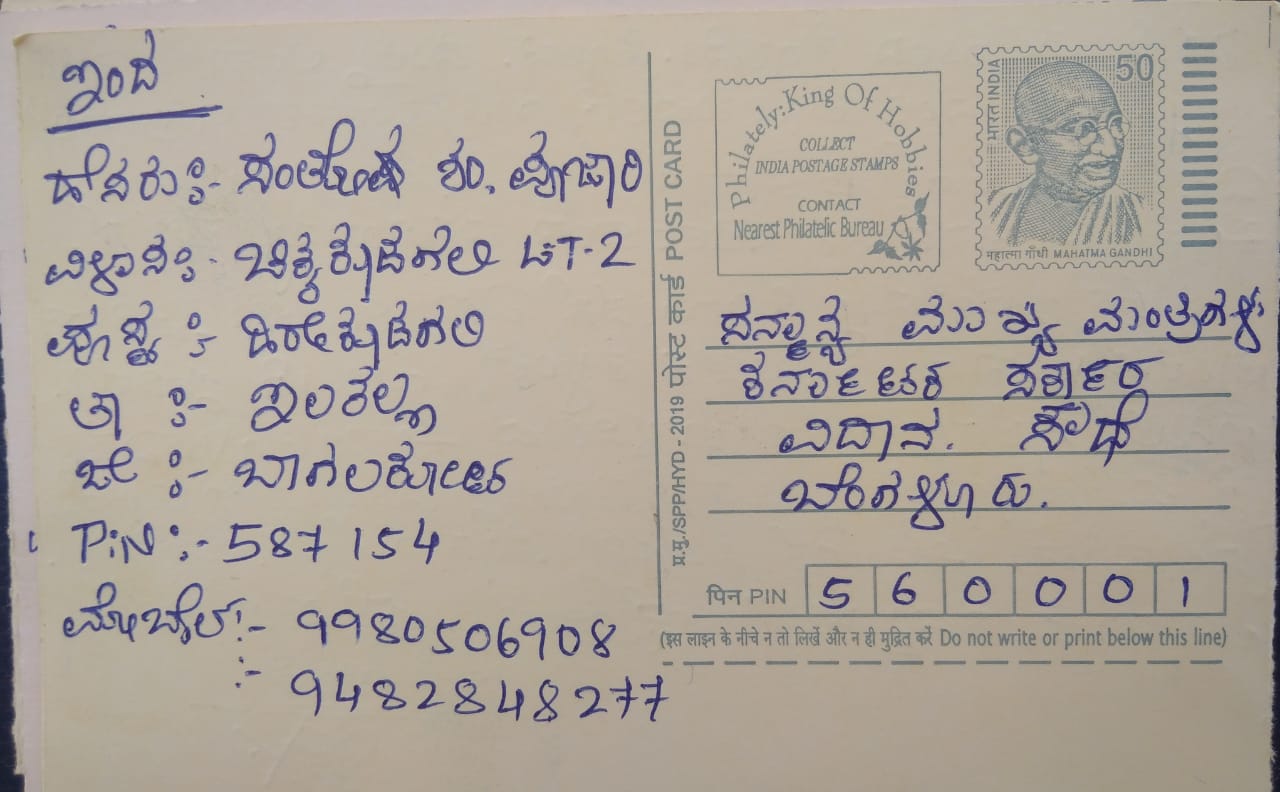 ಇಂದ
ಹೆಸರು :- ಸಂತೋಷ ಶಂ. ಪೂಜಾರಿ
ವಿಳಾಸ :- ಚಿಕ್ಕಕೊಡಗಲಿ LT-2
ಪೋಸ್ಟ :- ಹಿರೇಕೊಡಗಲಿ
ತಾ :- ಇಲಕಲ್ಲ
ಜಿಲೆ :- ಬಾಗಲಕೋಟ
PiN :- 587154
ಮೋಬೈಲ್ :- 9980506908
:- 9482848277
प्र.मु./SPP/HYD - 2019 पोस्ट कार्ड POST CARD
Philately: King Of Hobbies
COLLECT
INDIA POSTAGE STAMPS
CONTACT
Nearest Philatelic Bureau
भारत INDIA
50
महात्मा गाँधी MAHATMA GANDHI
ಸನ್ಮಾನ್ಯ ಮುಖ್ಯ ಮಂತ್ರಿಗಳು
ಕರ್ನಾಟಕ ಸರ್ಕಾರ
ವಿದಾನ. ಸೌಧ
ಬೆಂಗಳೂರು.
पिन PIN 560001
(इस लाइन के नीचे न तो लिखें और न ही मुद्रित करें Do not write or print below this line)